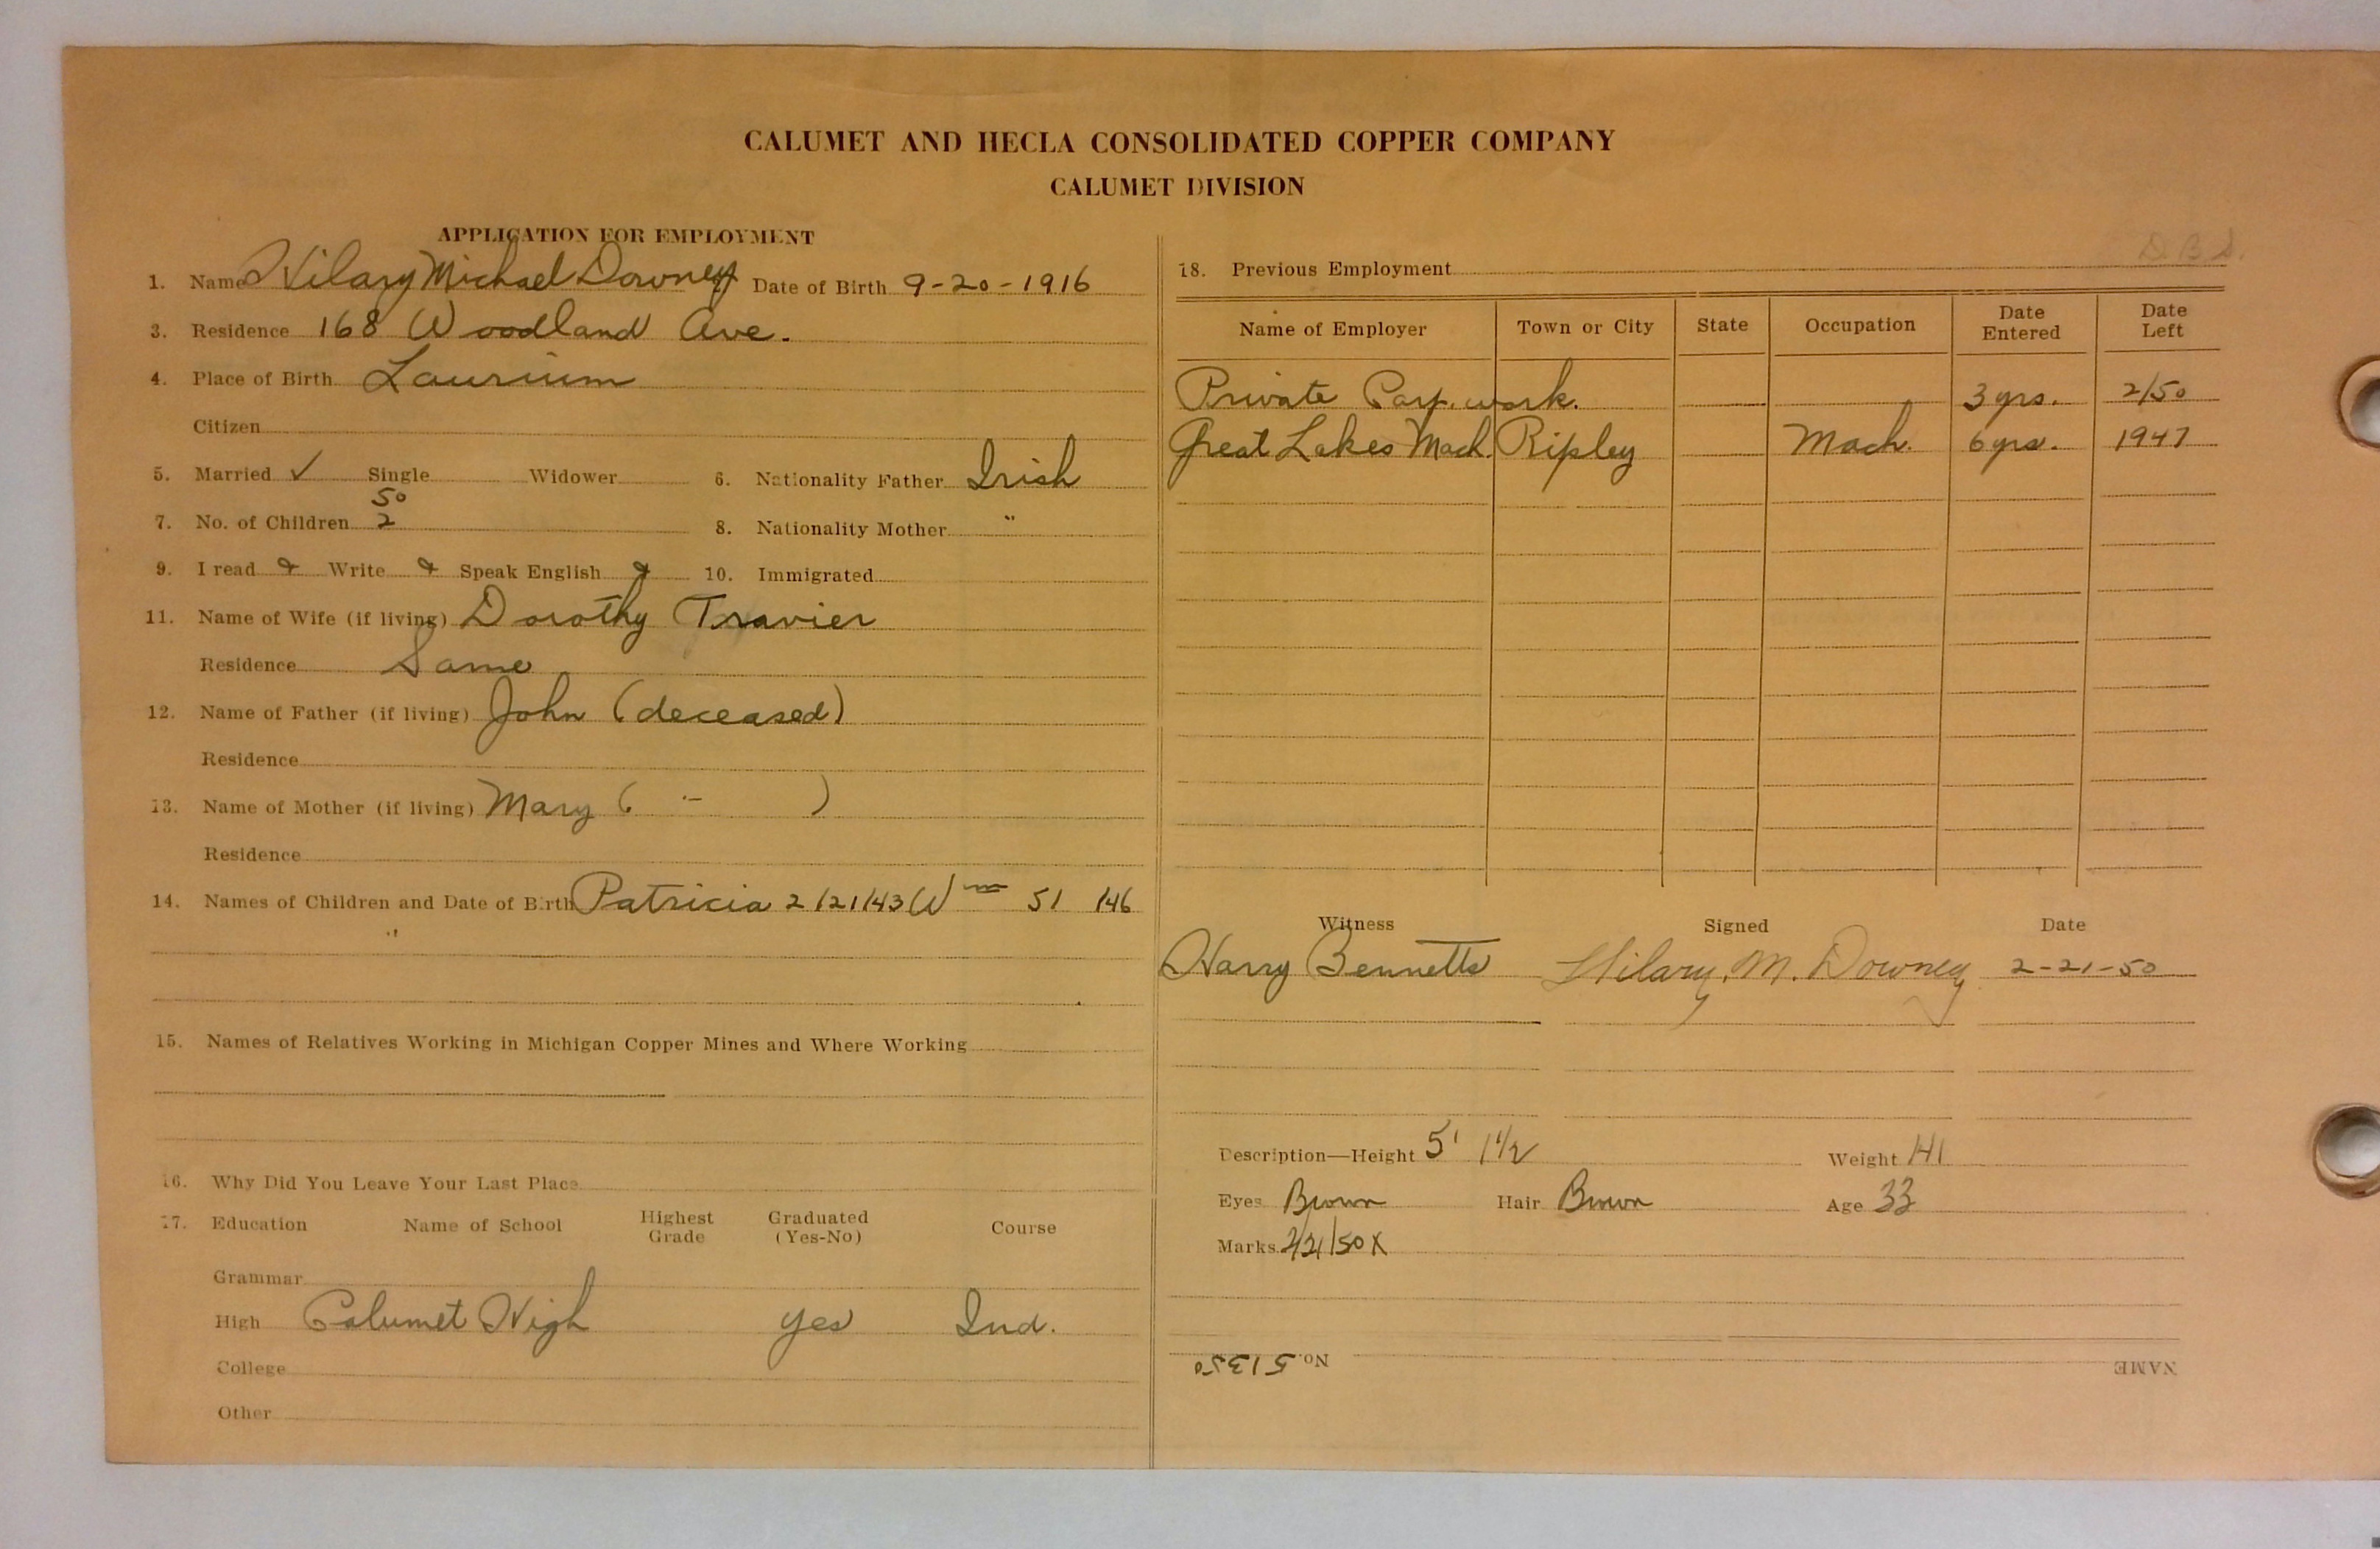 CALUMET AND HECLA CONSOLIDATED COPPER COMPANY
CALUMET DIVISION
APPLICATION FOR EMPLOYMENT
1. Name Hilary Michael Downey Date of Birth 9-20-1916
3. Residence 168 Woodland Ave.
4. Place of Birth Laurium
Citizen
5. Married ✓ Single Widower 6. Nationality Father Irish
50
7. No. of Children 2 8. Nationality Mother "
9. I read Write Speak English 10. Immigrated
11. Name of Wife (if living) Dorothy Travier
Residence Same
12. Name of Father (if living) John (deceased)
Residence
13. Name of Mother (if living) Mary ( " )
Residence
14. Names of Children and Date of Birth Patricia 2/21/43 Wm 51 146
"
15. Names of Relatives Working in Michigan Copper Mines and Where Working
16. Why Did You Leave Your Last Place
17. Education Name of School Highest Grade Graduated (Yes-No) Course
Grammar
High Calumet High yes Ind.
College
Other
D.B.S.
18. Previous Employment
Name of Employer Town or City State Occupation Date Entered Date Left
Private Carp. work. 3 yrs. 2/50
Great Lakes Mach. Ripley Mach. 6 yrs. 1947
Witness Signed Date
Harry Bennetts Hilary M. Downey 2-21-50
Description—Height 5' 1 1/2 Weight 141
Eyes Brown Hair Brown Age 33
Marks 2/21/50 X
NAME No. 51350